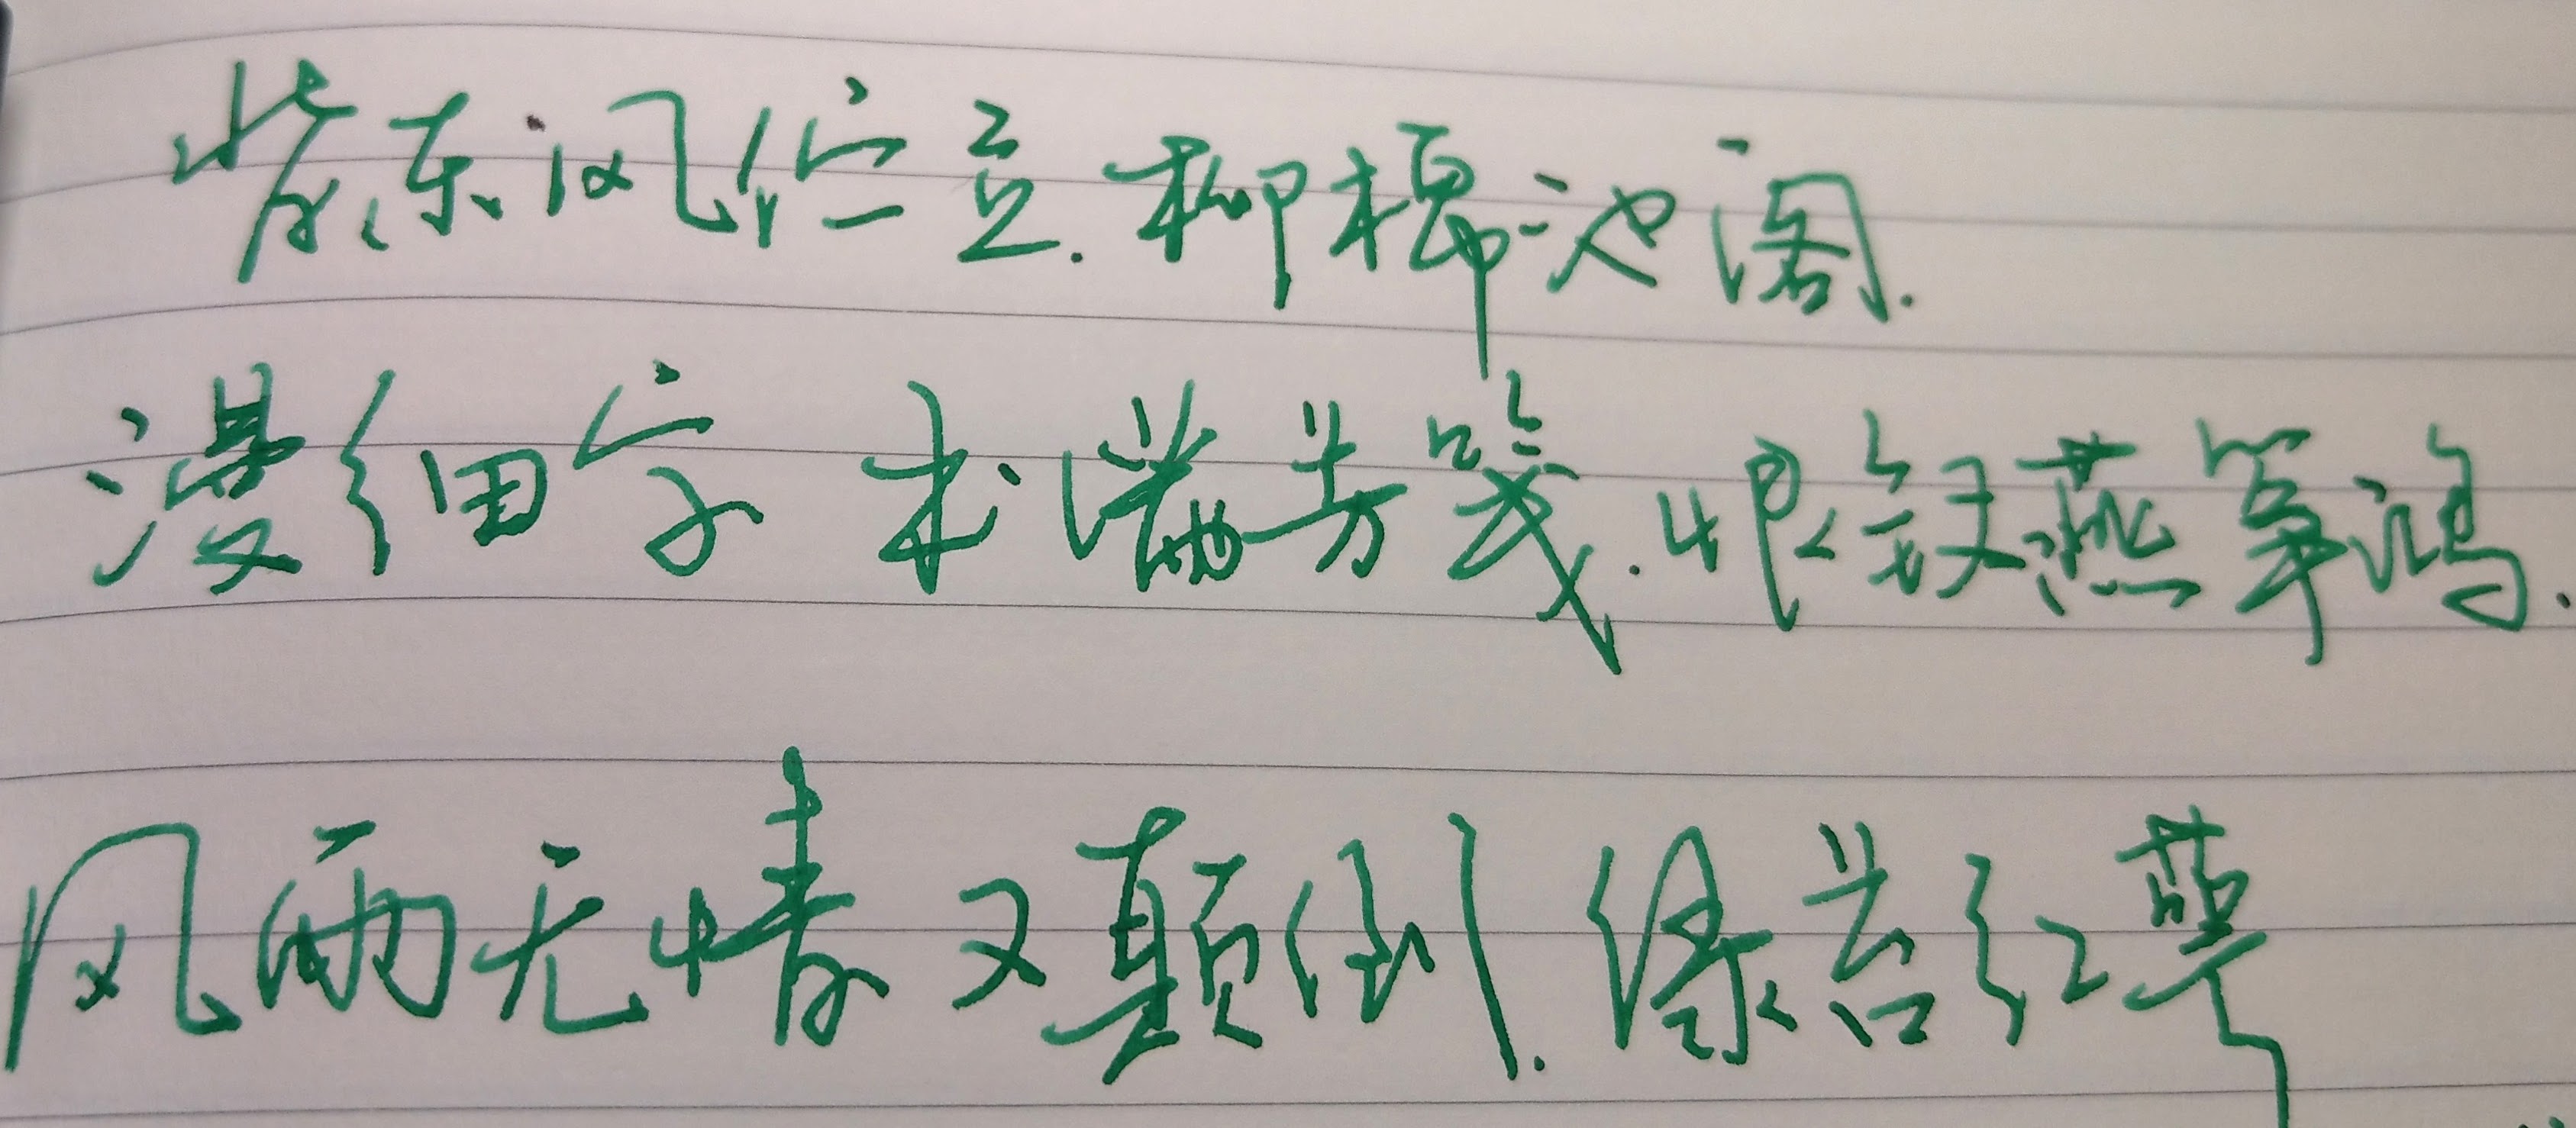 紫东风伫立.柳檐池阁.
漫细字求满芳笺.恨钗燕筝鸿.
风雨无情又颠倒.绿苔红萼